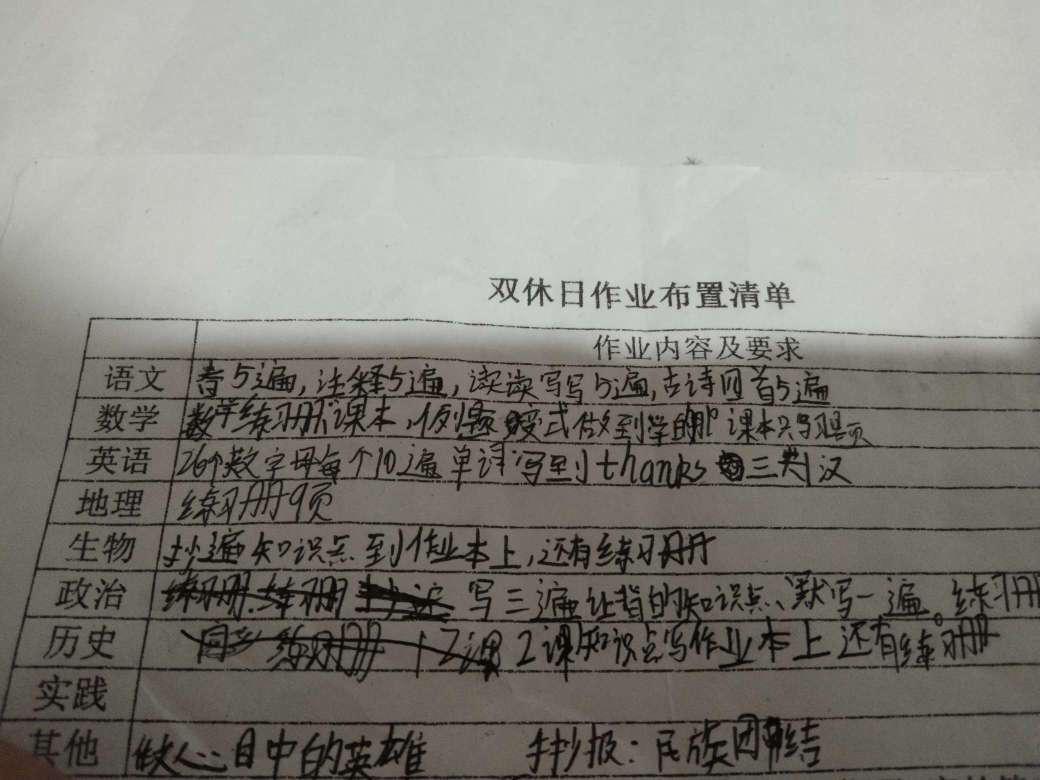 双休日作业布置清单
作业内容及要求
语文 背5遍,注释5遍,读读写写5遍,古诗四首5遍
数学 数学练习册课本,例题 式做到学的那 课本只写
英语 26个数字母每个10遍 单词写到thanks 三 汉
地理 练习册9页
生物 抄遍知识点到作业本上,还有练习册
政治 写三遍让背的知识点、默写一遍。练习册
历史 2课知识点写作业本上还有练习册
实践
其他 心目中的英雄 手抄报:民族团结